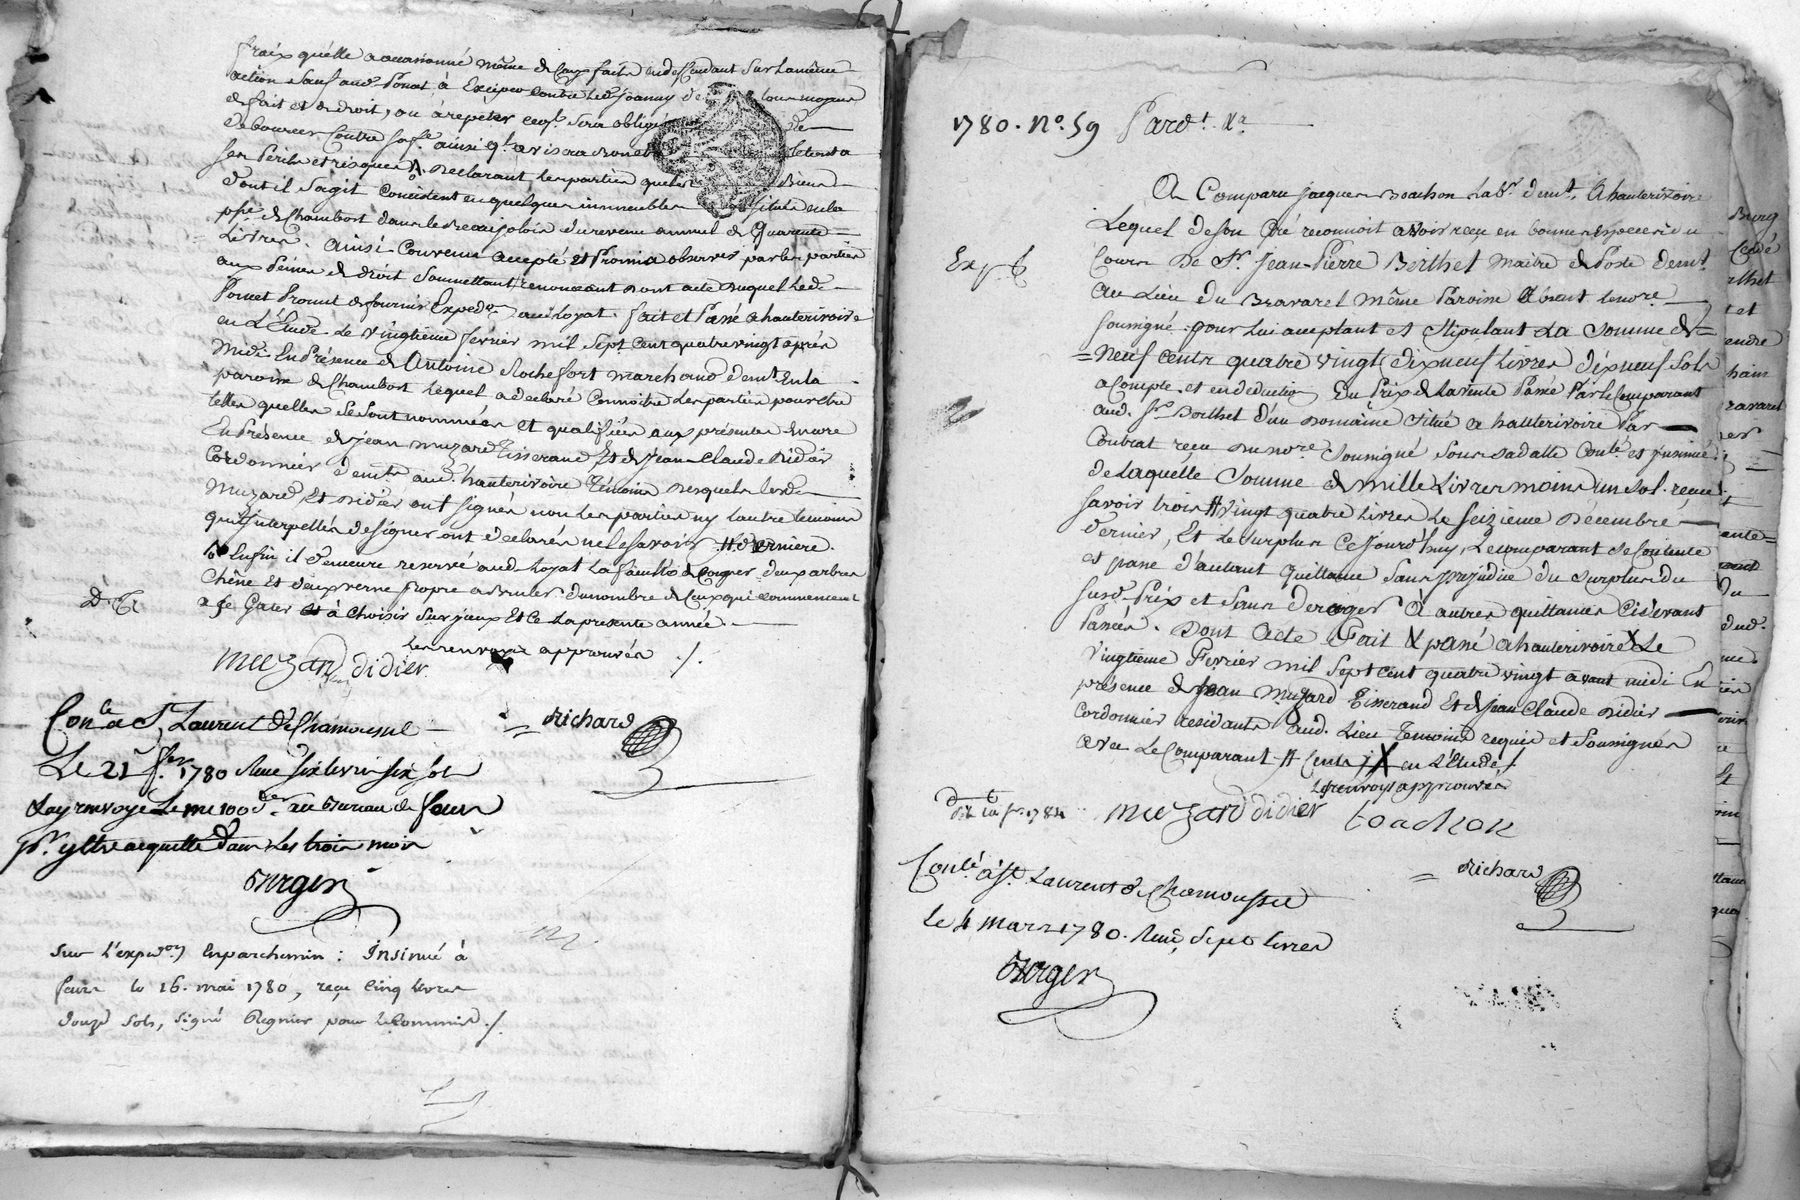 fraix qu'elle a occasionné même de Ceux faits en deffendant Sur La même
action Sauf aud. Poncet à Exciper Contre Led. Joanny de tous moyens
de fait et de droit, ou à repeter ce qu'il Sera obligé de
debourcer Contre
Ses Perils et risques Declarant les parties que les Biens
dont il S'agit Consistent en quelques immeubles Situés en la
psse de Chambost dans le Beaujolois du revenu annuel de Quarante
Livres. Ainsi Convenu accepté et Promis observer par les parties
aux Peines de droit Soumettant, renonceant dont acte duquel Led.
Poncet Promet de fournir Expedon. aud. Loyat. fait et Passé a hauterivoire
en L'Etude Le vingtieme fevrier mil Sept Cent quatre vingt après
Midi En Présence de Antoine Rochefort marchand demt. En la
paroisse de Chambost Lequel a declaré Connoitre Les parties pour etre
telles quelles Se Sont nommées et qualifiées aux présentes Encore
En Présence de jean muzard Tisserand Et de jean Claude Didier
Cordonnier demts. aud. hauterivoire Témoins Desquels Lesd.
Muzard Et Didier ont Signés non Les parties ny L'autre temoins
qui interpellés de Signer ont declarés ne le Savoir # derniere.
Enfin il demeure reservé aud. Loyat La faculté de Couper deux arbres
Chêne Et deux verne du nombre de Ceux qui commencent
a Se Gater à Choisir Sur jceux Et Ce La presente année.
Les renvoys approuvés ./.
muzard didier
Richard
Conlé a St. Laurent de Chamousset
Le 21 fer. 1780 Reçu Six livres Six Sols
Renvoyé Le me 100e der. au Bureau de feurs
pr. y être acquitté Dans Les trois mois
Berger
Sur L'expedon. En parchemin : Insinué à
feurs le 16. mai 1780, reçu Cinq livres
Douze Sols, signé Regnier pour le Commis ./.
1780. No. 59 Pardt. Na
A Comparu jacques Boachon Labr. demt. A hauterivoire
Lequel de Son Gré reconnoit avoir reçu en bonnes Especes du
Cours De Sr. Jean-Pierre Berthet maitre de Poste demt.
Au Lieu du Bravaret même Paroisse Absent Le nore.
Soussigné pour Lui acceptant et Stipulant La Somme de
Neuf Cents quatre vingt dixneuf Livres dixneuf Sols
a Compte et en deduction Du Prix de La vente Passée Par Le Comparant
aud. Sr. Berthet d'un Domaine Situé a hauterivoire Par
Contrat reçu Du nore. Soussigné Sous Sa datte Conlé. et jnsinué.
de Laquelle Somme de mille Livres moins un Sol. reçue
Savoir trois # vingt quatre Livres Le Seizieme Décembre
dernier, Et Le Surplus Cejourd'huy, Le comparant Se Contente
et passe d'autant Quittance Sans prejudice du Surplus du
Susd. Prix et Sans deroger A autres quittances Cidevant
Passées. Dont Acte Fait & passé a hauterivoire X Le
vingtieme Fevrier mil Sept Cent quatre vingt avant midi En
présence de jean Muzard Tisserand Et de jean Claude Didier
Cordonnier residants aud. Lieu Temoins requis et Soussignés
avec Le Comparant # Cents X en L'Etude ./.
Les renvoys approuvés
muzard didier boachon
Richard
Conlé à St. Laurent de Chamousset
Le 4 mars 1780. Reçu Sept livres
Berger